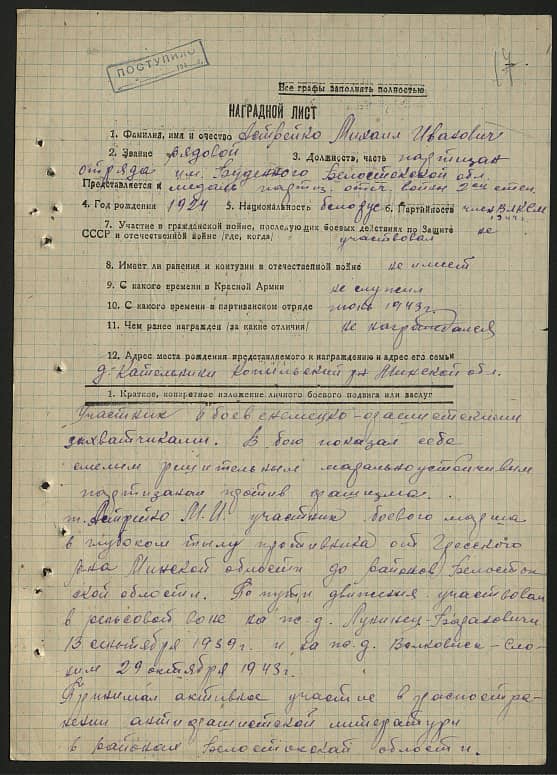 ПОСТУПИЛО
14
Все графы заполнять полностью
НАГРАДНОЙ ЛИСТ
1. Фамилия, имя и очество Астрейко Михаил Иванович
2. Звание рядовой 3. Должность, часть партизан
отряда им. Буденного Белостокской обл.
Представляется к медаль партиз. отеч. войны 2ой степ.
4. Год рождения 1924 5. Национальность белорус 6. Партийность член ВЛКСМ
7. Участие в гражданской войне, последующих боевых действиях по Защите не
СССР и отечественной войне /где, когда/ участвовал
8. Имеет ли ранения и контузии в отечественной войне не имеет
9. С какого времени в Красной Армии не служил
10. С какого времени в партизанском отряде июнь 1943г.
11. Чем ранее награжден /за какие отличия/ не награждался
12. Адрес места рождения представляемого к награждению и адрес его семьи
д. Копыльский р-н Минской обл.
1. Краткое, конкретное изложение личного боевого подвига или заслуг
Участник боев с немецко-фашистскими
захватчиками. В бою показал себя
смелым решительным моральноустойчивым
партизаном против фашизма.
т. Астрейко М.И. участник боевого марша
в глубоком тылу противника от Гресского
р-на Минской области до районов Белосток-
ской области. По пути движения участвовал
в рельсовой воне на ж.д. Лунинец-Баранович
13 сентября 1939г. и на ж.д. Волковыск-Сло-
ним 29 октября 1943г.
Принимал активное участие в распостра-
нении антифашистской литературы
в районах Белостокской области.